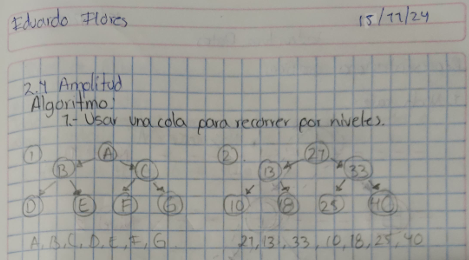 Eduardo Flores 15/11/24
2.4 Amplitud
Algoritmo:
1.- Usar una cola para recorrer por niveles.
1 A 2 27
B C 13 33
D E F G 10 18 25 40
A, B, C, D, E, F, G 27, 13, 33, 10, 18, 25, 40